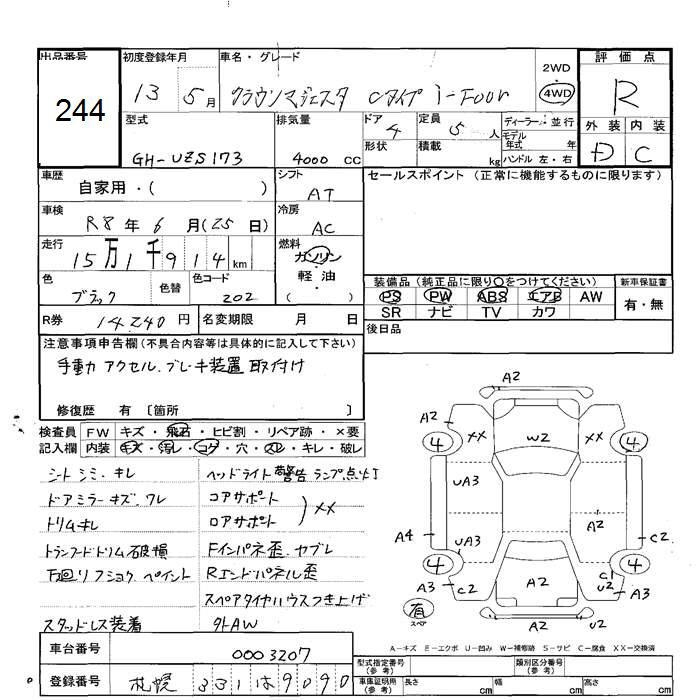 出品番号
244
初度登録年月
13 5月
車名・グレード
クラウンマジェスタ Cタイプ i-Four
2WD
4WD
評価点
R
外装 内装
D C
型式
GH-UZS173
排気量
4000 cc
ドア
4
形状
定員
5 人
積載
kg
ディーラー・並行
モデル
年式 年
ハンドル 左・右
車歴
自家用・( )
シフト
AT
セールスポイント(正常に機能するものに限ります)
車検
R8年6月(25日)
冷房
AC
走行
15万1千914km
燃料
ガソリン
・
軽油
( )
色
ブラック
色替
色コード
202
装備品(純正品に限り○をつけてください)
PS PW ABS エアB AW
SR ナビ TV カワ
新車保証書
有・無
R券
14,240円
名変期限 月 日
後日品
注意事項申告欄(不具合内容等は具体的に記入して下さい)
手動力 アクセル.ブレーキ装置 取付け
修復歴 有〔箇所 〕
検査員
記入欄
FW キズ・飛石・ヒビ割・リペア跡・×要
内装 キズ・汚レ・コゲ・穴・スレ・キレ・破レ
シートシミ.キレ
ドアミラーキズ.ワレ
トリムキレ
トランクフードトリム破損
スタッドレス装着
ヘッドライト警告ランプ点灯
コアサポート
ロアサポート
XX
Fインパネ歪.カブレ
Rエンドパネル歪
スペアタイヤハウスつき上げ
外AW
A2
A2
XX
W2
XX
A2
4
4
UA3
A4
A2
C2
UA3
4
4
A3
C2
A2
C1
U2
A3
有
スペア
A2
U2
A-キズ E-エクボ U-凹み W-補修跡 S-サビ C-腐食 XX-交換済
車台番号
0003207
登録番号
札幌 331は9090
型式指定番号
(参考)
類別区分番号
(参考)
車庫証明用
(参考)
長さ cm
幅 cm
高さ cm